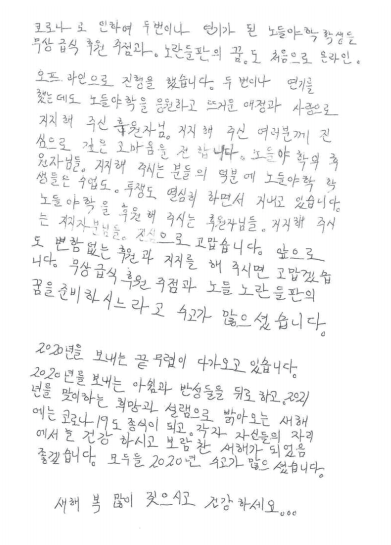 코로나 로 인하여 두번이나 연기가 된 노들야학 학생들
무상 급식 후원 주점과. 노란들판의 꿈. 도 처음으로 온라인.
오프 라인으로 진행을 했습니다. 두 번이나 연기를
했는데도 노들야학을 응원하고 뜨거운 애정과 사랑으로
지지해 주신 후원자님. 지지해 주신 여러분께 진
심으로 깊은 고마움을 전합니다. 노들야 학의 후
원자님들. 지지해 주시는 분들의 덕분에 노들야학 학
생들은 수업도. 투쟁도 열심히 하면서 지내고 있습니다
노들야학을 후원해 주시는 후원자님들. 지지해 주시
는 지지자분님들. 진심으로 고맙습니다. 앞으로
도 변함없는 후원과 지지를 해 주시면 고맙겠습
니다. 무상급식 후원 주점과 노들 노란들판의
꿈을 준비하시느라고 수고가 많으셨습니다.
2020년을 보내는 끝 무렵이 다가오고 있습니다.
2020년을 보내는 아쉼과 반성들을 뒤로 하고. 2021
년을 맞이하는 희망과 설램으로 밝아오는 새해
에는 코로나19도 종식이 되고. 각자 자신들의 자리
에서 늘 건강 하시고 보람찬 새해가 되었음
좋겠습니다. 모두들 2020년 수고가 많으셨습니다.
새해 복 많이 짖으시고 건강하세요...